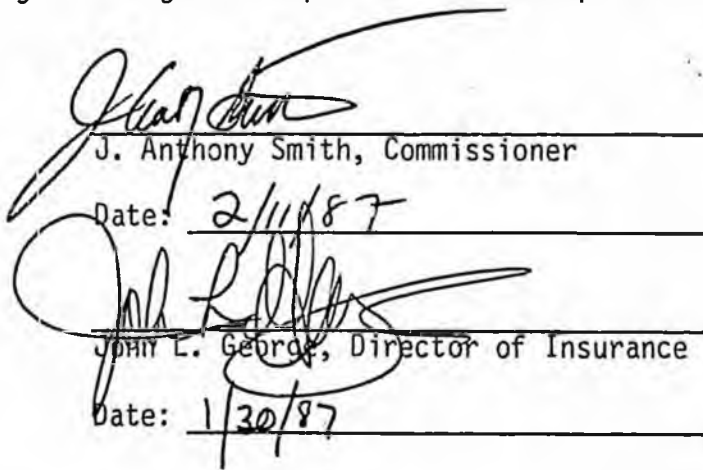 J. Anthony Smith, Commissioner
Date: 2/11/87
John L. George, Director of Insurance
Date: 1/30/87